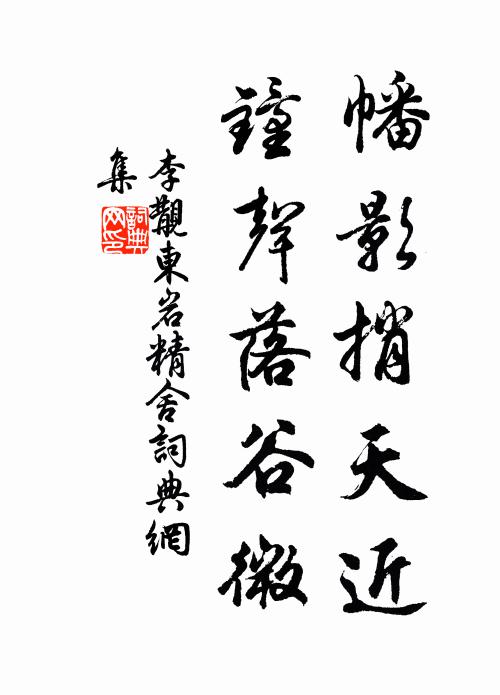 幡影捎天近
鐘聲落谷微
李觀東岩精舍詞典網
集
詞典
网印